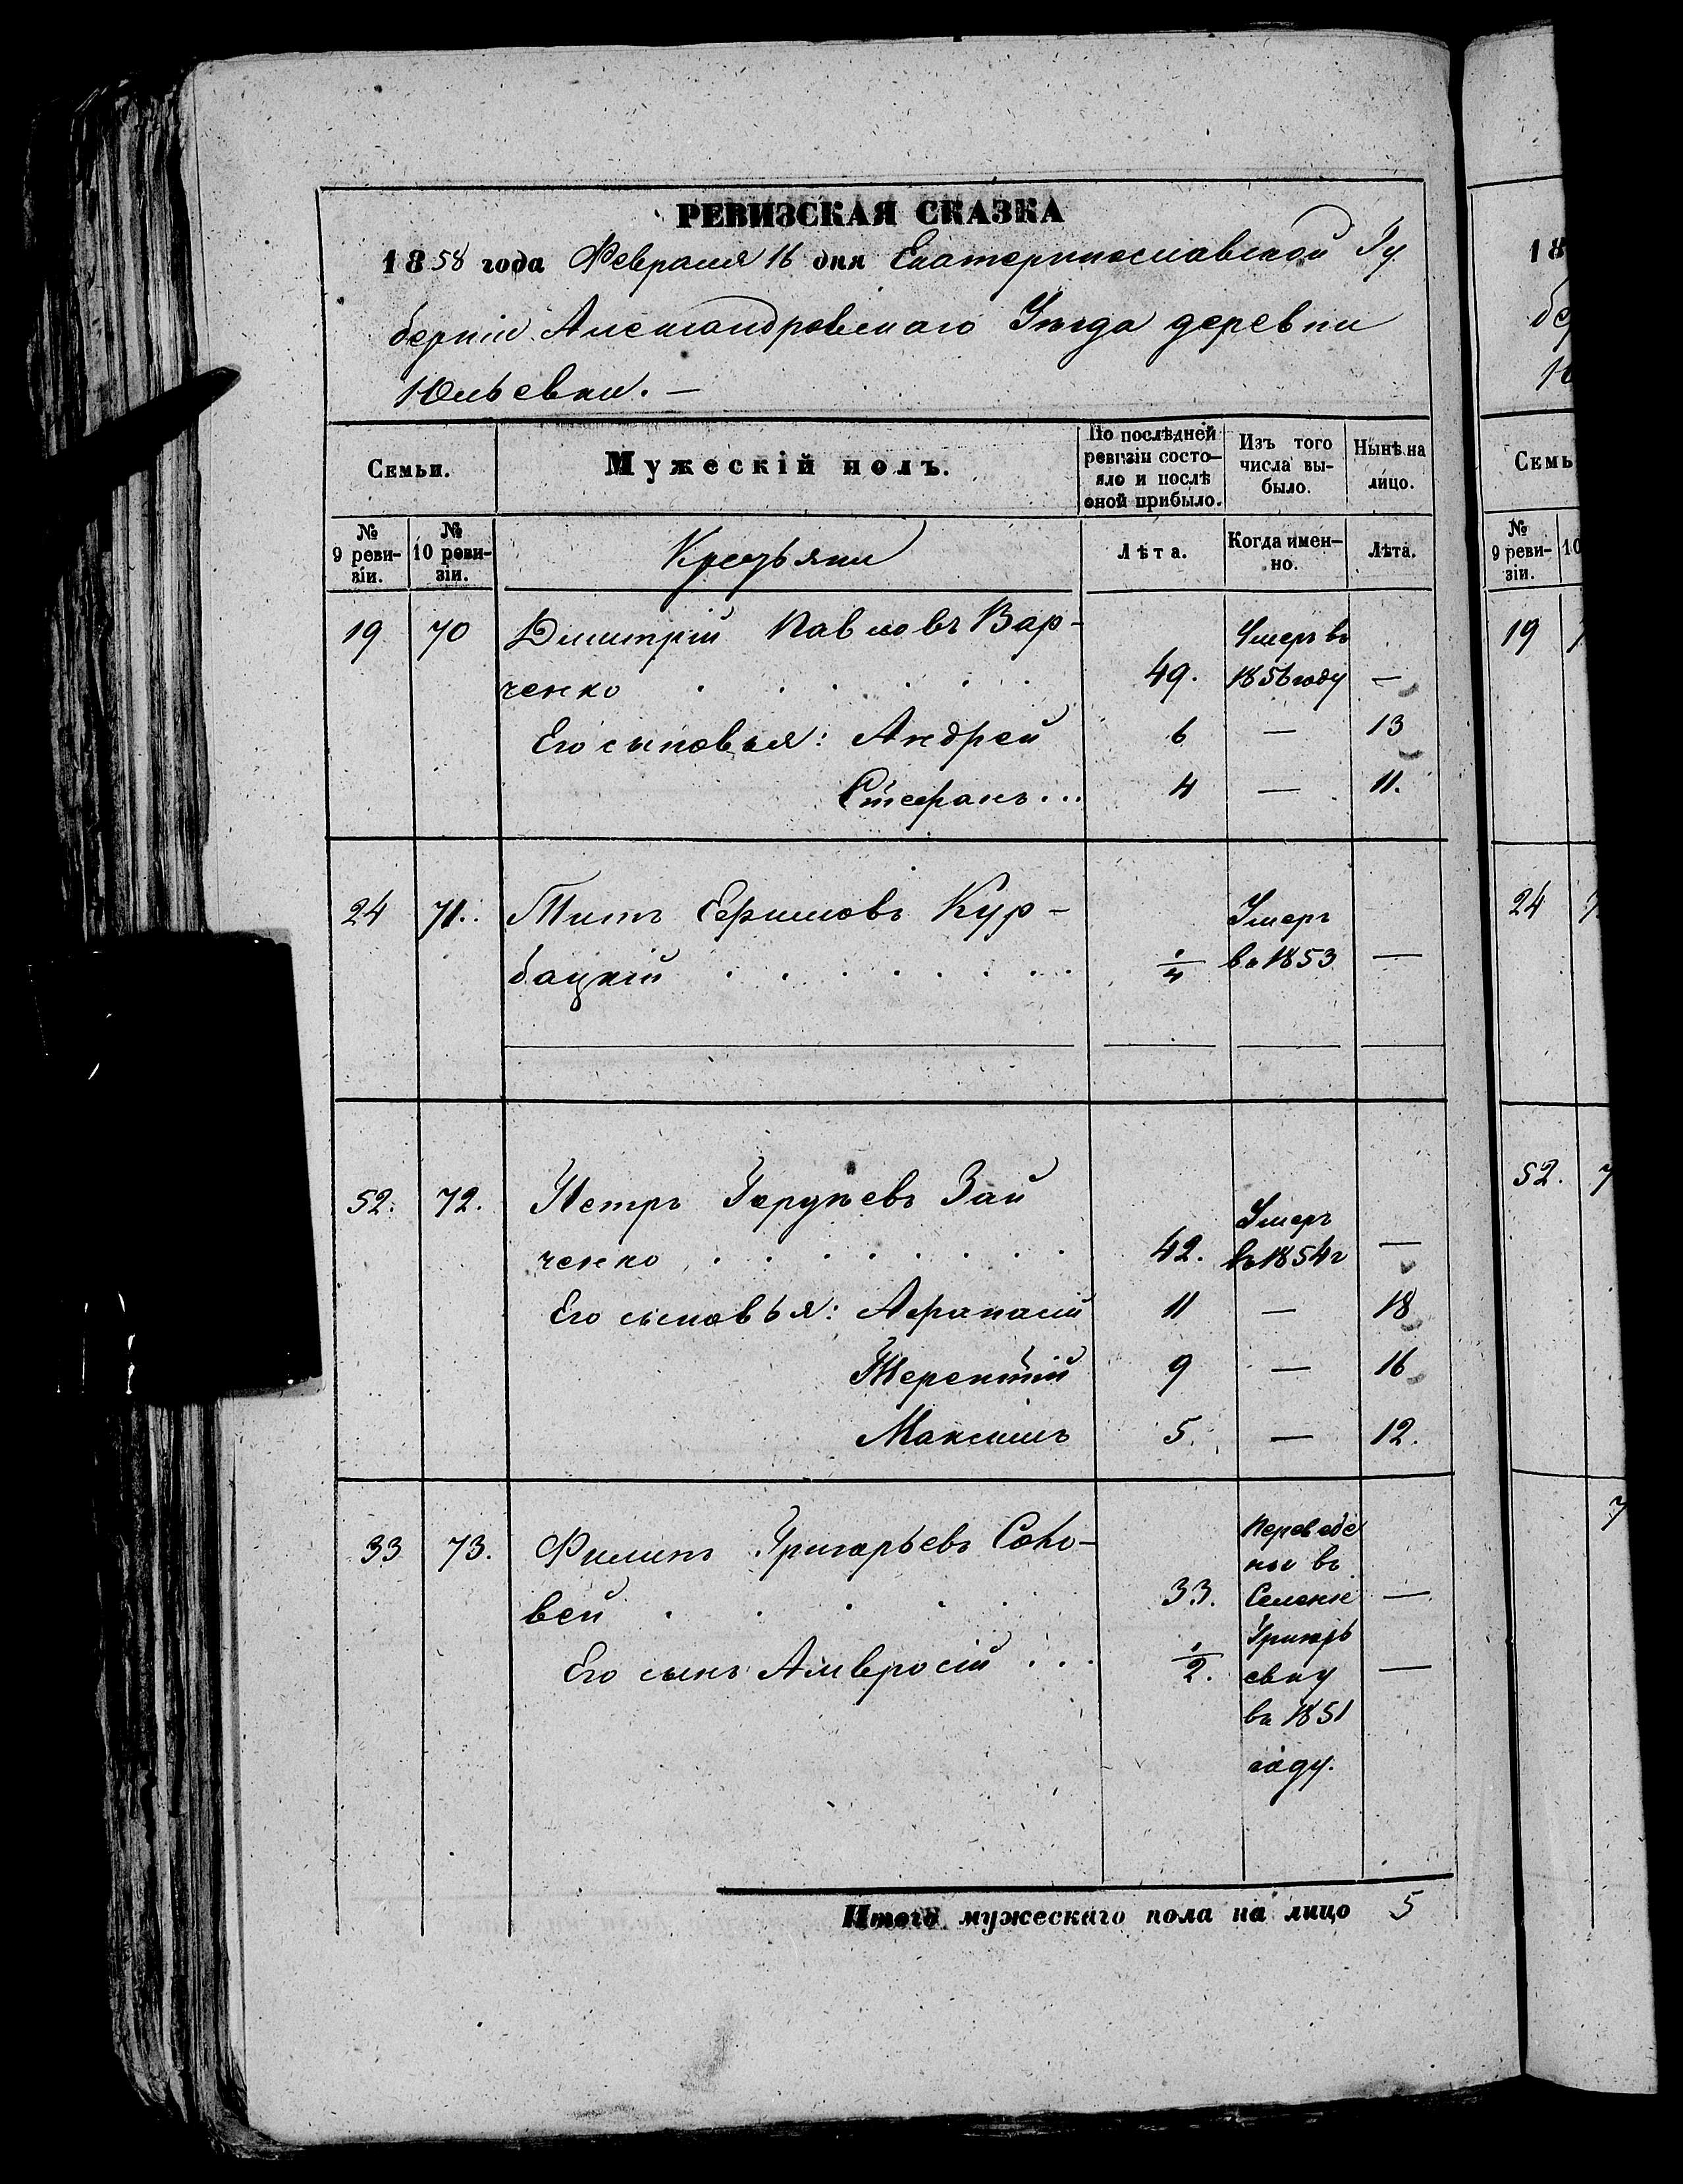 РЕВИЗСКАЯ СКАЗКА
1858 года Февраля 16 дня Екатеринославской Гу
берніи Александровскаго Уезда деревни
Юльевки. —
Семьи.
Мужескій полъ.
По послѣдней ревизіи состо-яло и послѣ оной прибыло.
Изъ того числа вы-было.
Нынѣ на лицо.
№ 9 реви-зіи.
№ 10 реви-зіи.
Крестьяни
Лѣта.
Когда имен-но.
Лѣта.
19 70 Димитрій Павловъ Вар-
ченко . . . . . . . 49. Умеръ въ 1856 году —
Его сыновья: Андрей 6 — 13
Стефанъ... 4 — 11.
24 71. Титъ Ефимовъ Кур-
бацкій . . . . . . . 1/4 Умеръ въ 1853 —
52. 72. Петръ Зай
ченко . . . . . . . 42. Умеръ въ 1854 г —
Его сыновья: Афанасій 11 — 18
Терентій 9 — 16
Максимъ 5. — 12.
33 73. Филипъ Григорьевъ Соло-
вей . . . . . 33. —
Его сынъ Амвросій . . . 1/2. —
Переведе
ны въ
Селеніе
Григорь
евку
въ 1851
году.
Итого мужескаго пола на лицо 5
18
бер
Ю
Семь
№ 9 реви-зіи.
10
19
24
52. 7
7